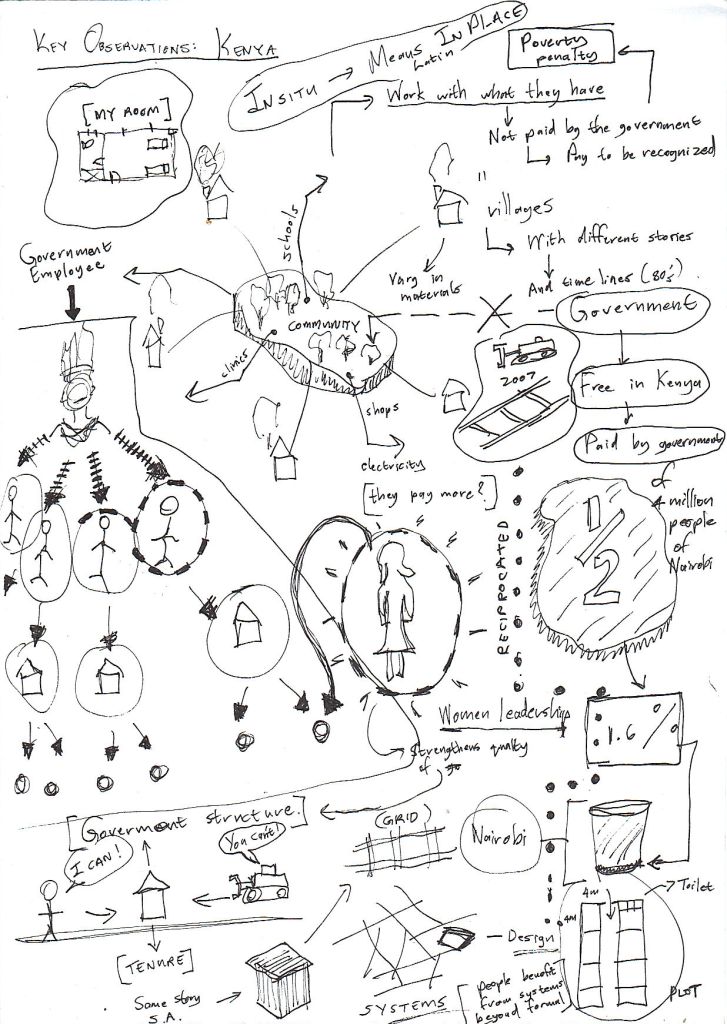 KEY OBSERVATIONS: KENYA
INSITU → Means IN PLACE
Latin
Poverty
penalty
Work with what they have
Not paid by the government
Pay to be recognized
[MY ROOM]
villages
With different stories
And time lines (80's)
Vary in
materials
schools
Government
Employee
COMMUNITY
clinics
shops
electricity
2007
Government
Free in Kenya
Paid by government
[they pay more?]
RECIPROCATED
1/2
of
4 million
people
of
Nairobi
Women leadership
Strengthens quality
of
1.6 %
[Goverment structure.]
I CAN!
You can't!
(GRID)
Nairobi
[TENURE]
Same story
S.A.
SYSTEMS
Design
[people benefit
from systems
beyond formal]
4m
4m
Toilet
PLOT